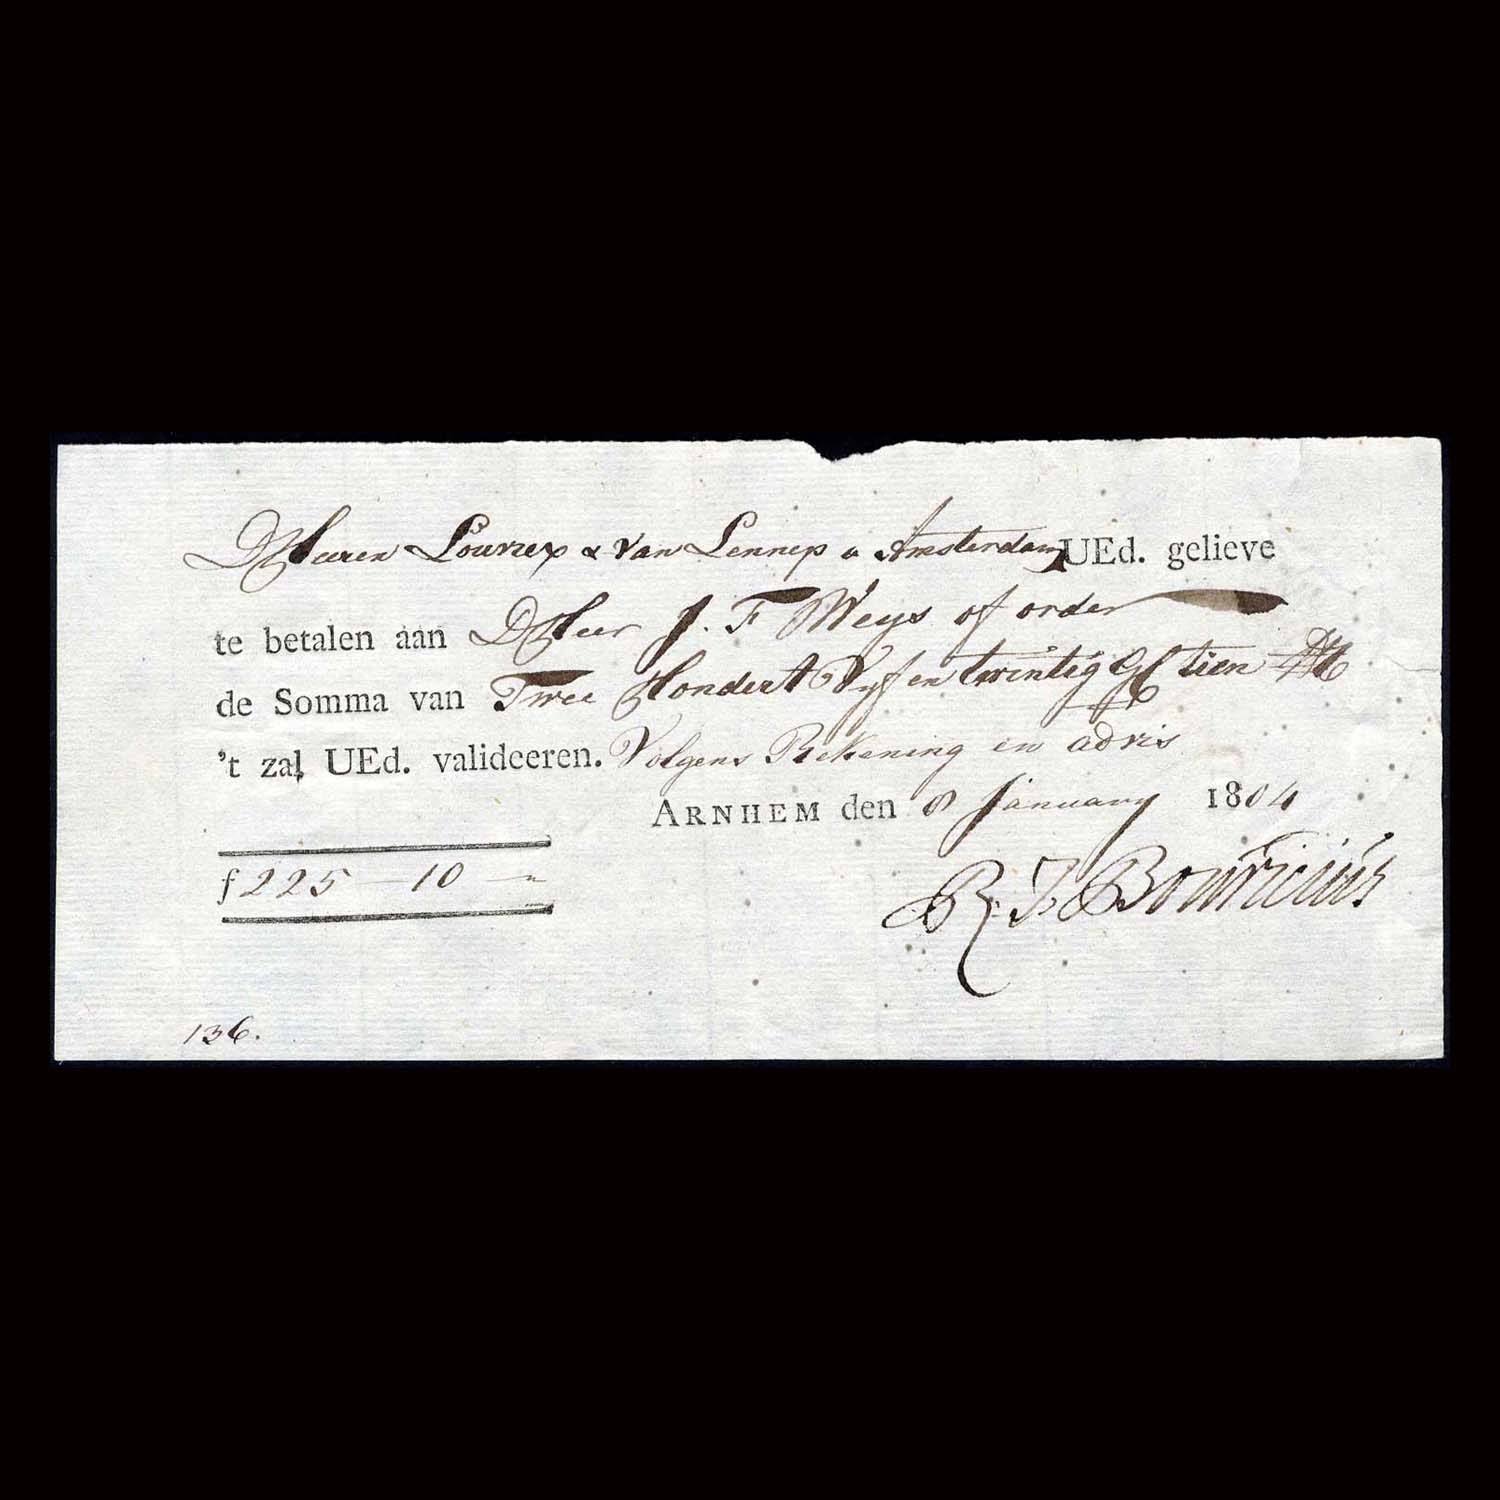 D Heeren Louvrex & van Lennep a Amsterdam UEd. gelieve
te betalen aan D Heer J. F Weys of order
de Somma van Twee Hondert Vyf en twintig Gl tien
't zal UEd. valideeren. Volgens Rekening en advis
ARNHEM den 8 January 1804
f 225 — 10 —"
R. J. Bouricius
136.